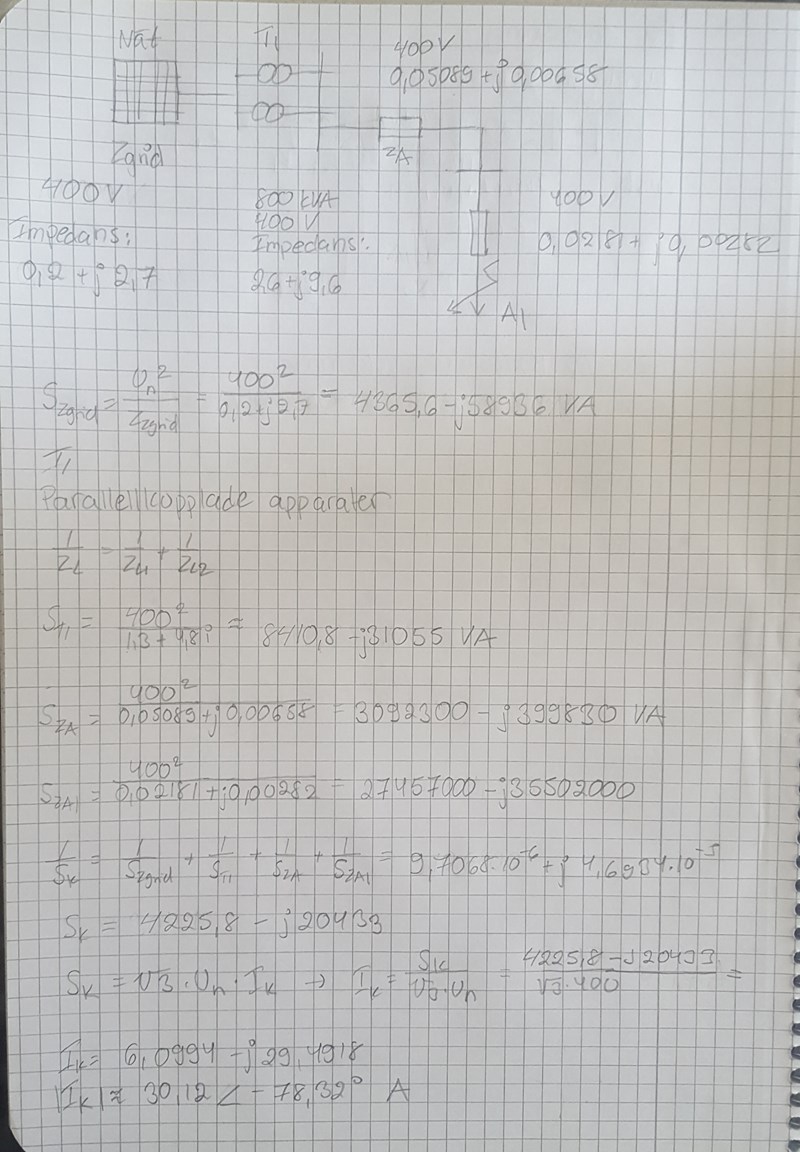 Nät T1 400V
0,05089 + j0,00658
Zgrid ZA
400V 800 kVA 400V
Impedans: 400 V 0,02181 + j0,00282
0,2 + j2,7 Impedans:
2,6 + j9,6
A1
S_Zgrid = Un²/Zzgrid = 400²/(0,2+j2,7) = 4365,6 - j58936 VA
T1
Parallellkopplade apparater
1/ZL = 1/Z11 + 1/Z12
ST1 = 400²/(1,3+4,8i) ≈ 8410,8 - j31055 VA
SZA = 400²/(0,05089+j0,00658) = 3092300 - j399830 VA
SZA1 = 400²/(0,02181+j0,00282) = 27457000 - j35502000
1/Sk = 1/Szgrid + 1/ST1 + 1/SZA + 1/SZA1 = 9,7068·10⁻⁶ + j4,6934·10⁻⁵
Sk = 4225,8 - j20433
Sk = √3·Un·Ik → Ik = Sk/(√3·Un) = (4225,8 - j20433)/(√3·400) =
Ik = 6,0994 - j29,4918
|Ik| ≈ 30,12 ∠ -78,32° A